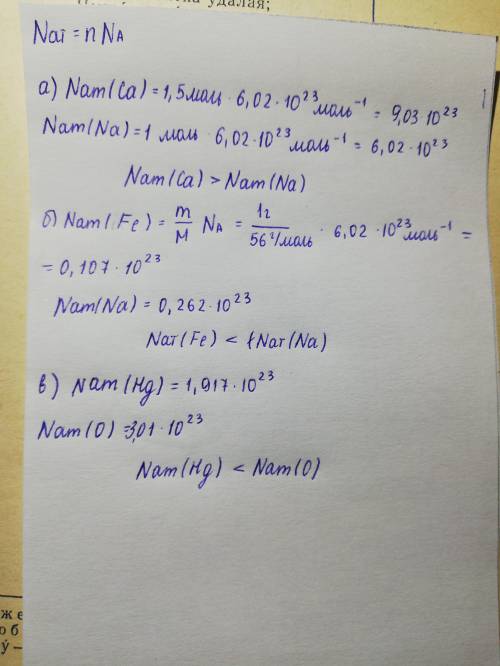 удалая;
Nат = n NA
а) Nат(Ca) = 1,5моль · 6,02 · 10²³ моль⁻¹ = 9,03 · 10²³
Nат(Na) = 1 моль · 6,02 · 10²³ моль⁻¹ = 6,02 · 10²³
Nат(Ca) > Nат(Na)
б) Nат(Fe) = m/M NA = 1г/56 г/моль · 6,02 · 10²³ моль⁻¹ =
= 0,107 · 10²³
Nат(Na) = 0,262 · 10²³
Nат(Fe) < Nат(Na)
в) Nат(Hg) = 1,917 · 10²³
Nат(O) = 3,01 · 10²³
Nат(Hg) < Nат(O)